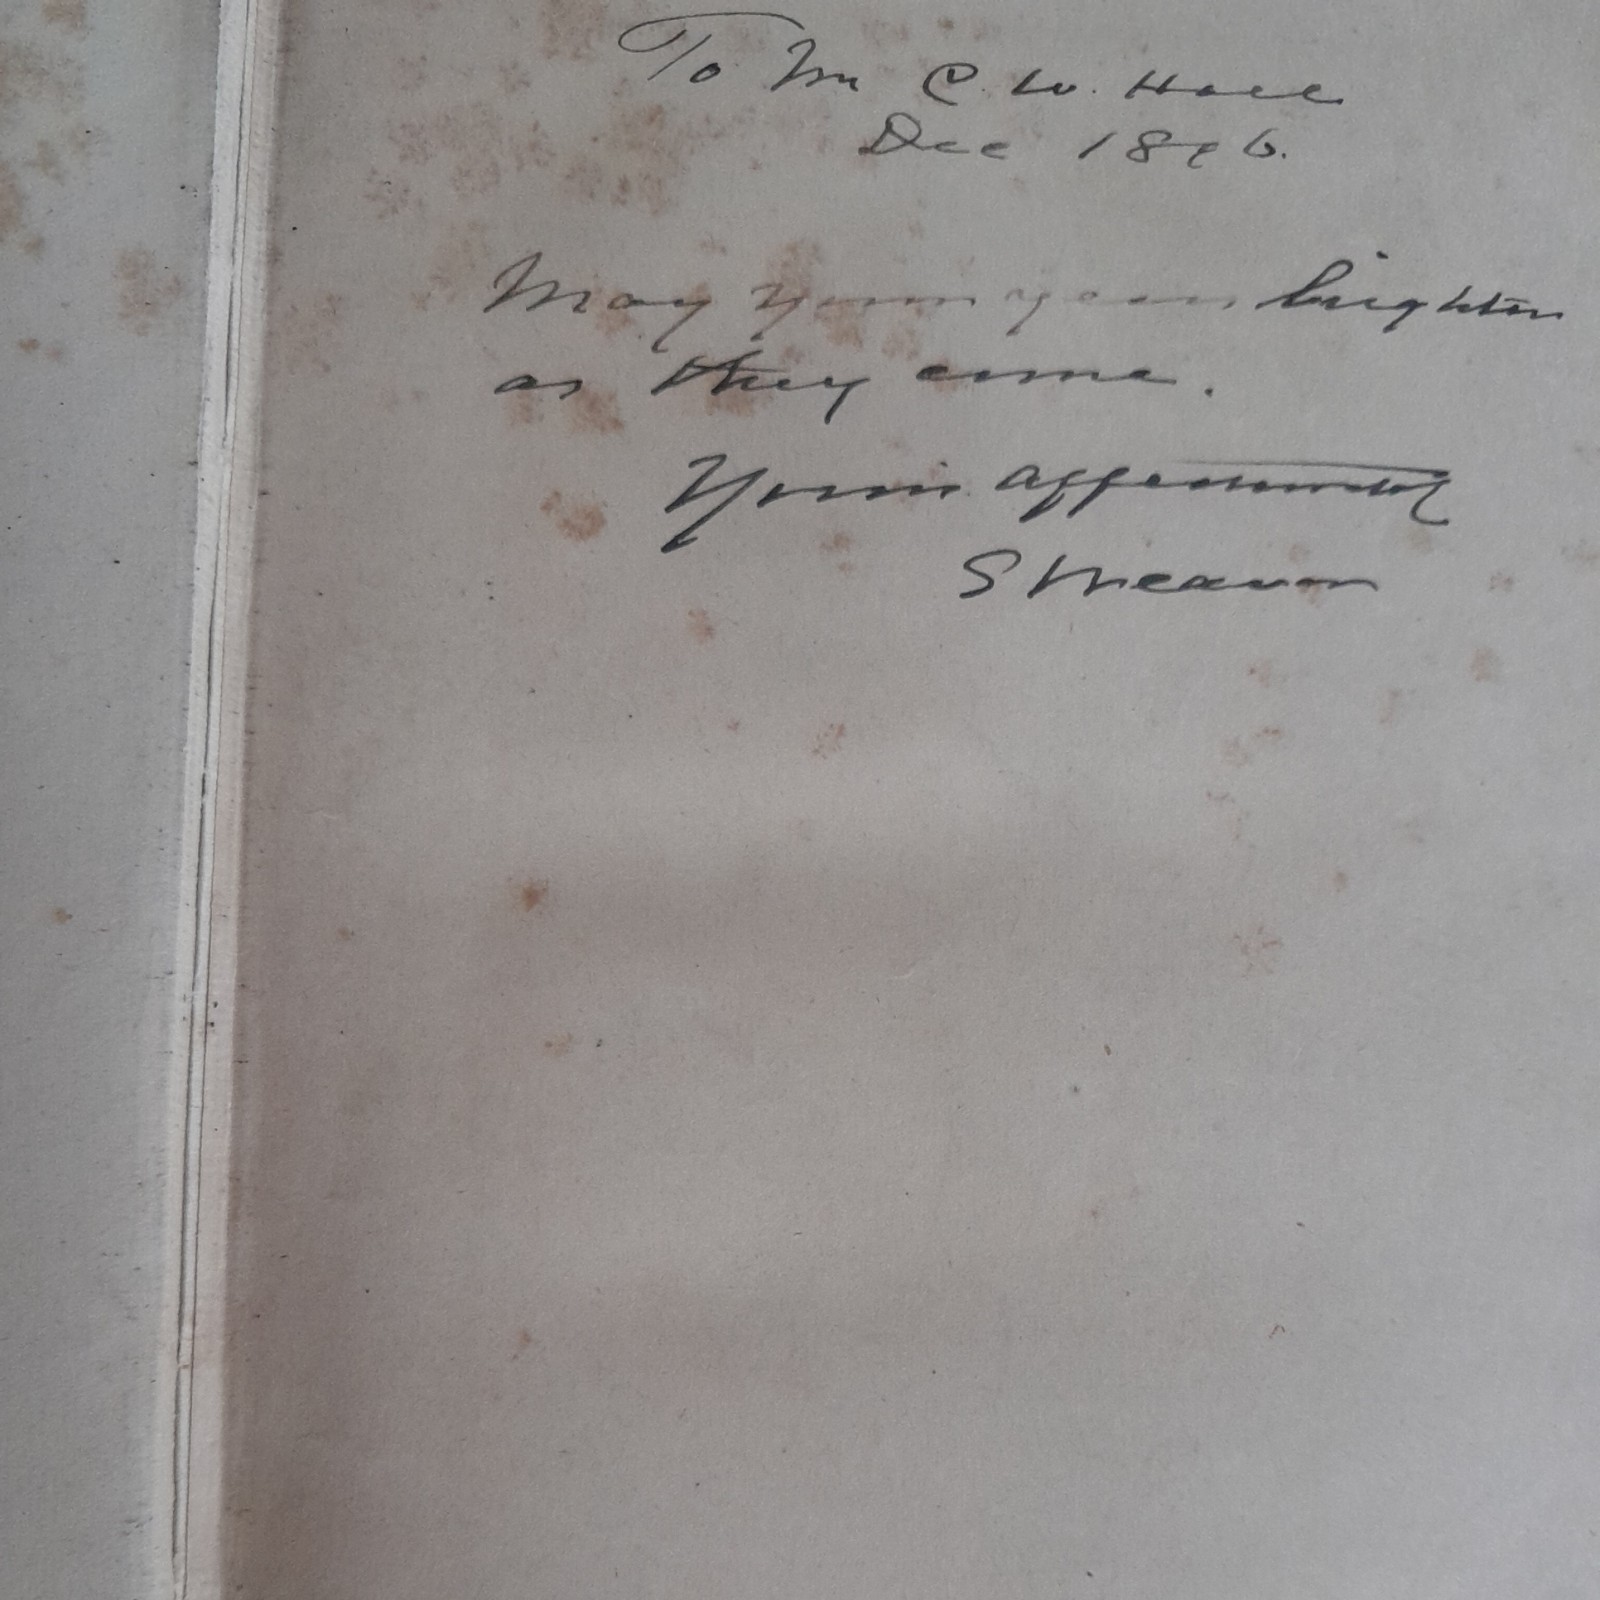 To Mr C. W. Hall
Dec 1896.
May your years brighten
as they come.
Yours affectionately
S Weaver